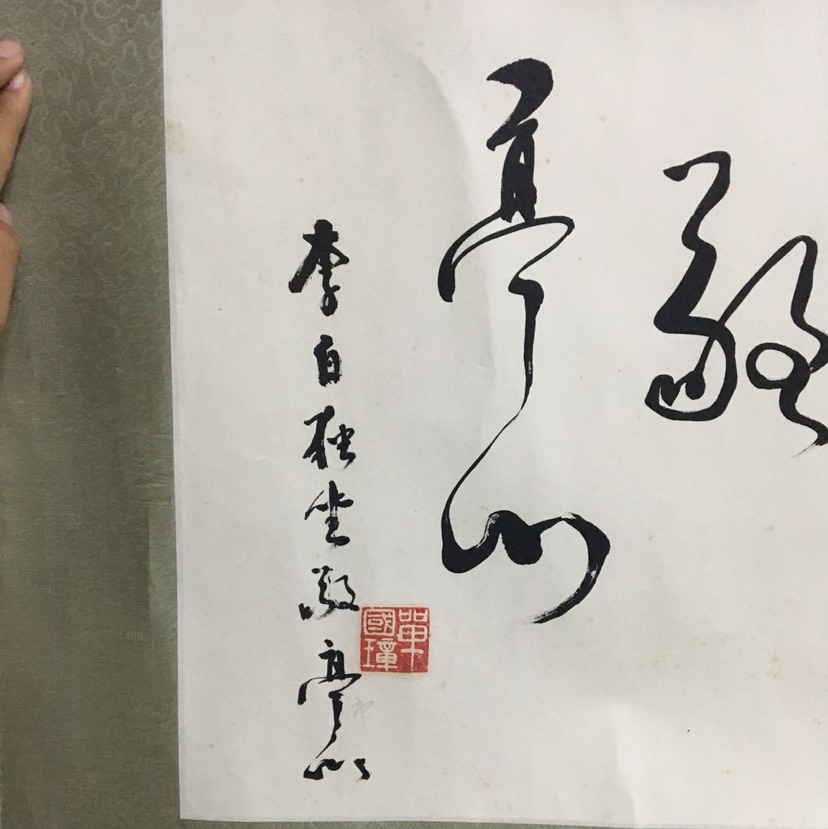 敬
亭山
李白独坐敬亭山
單國璋